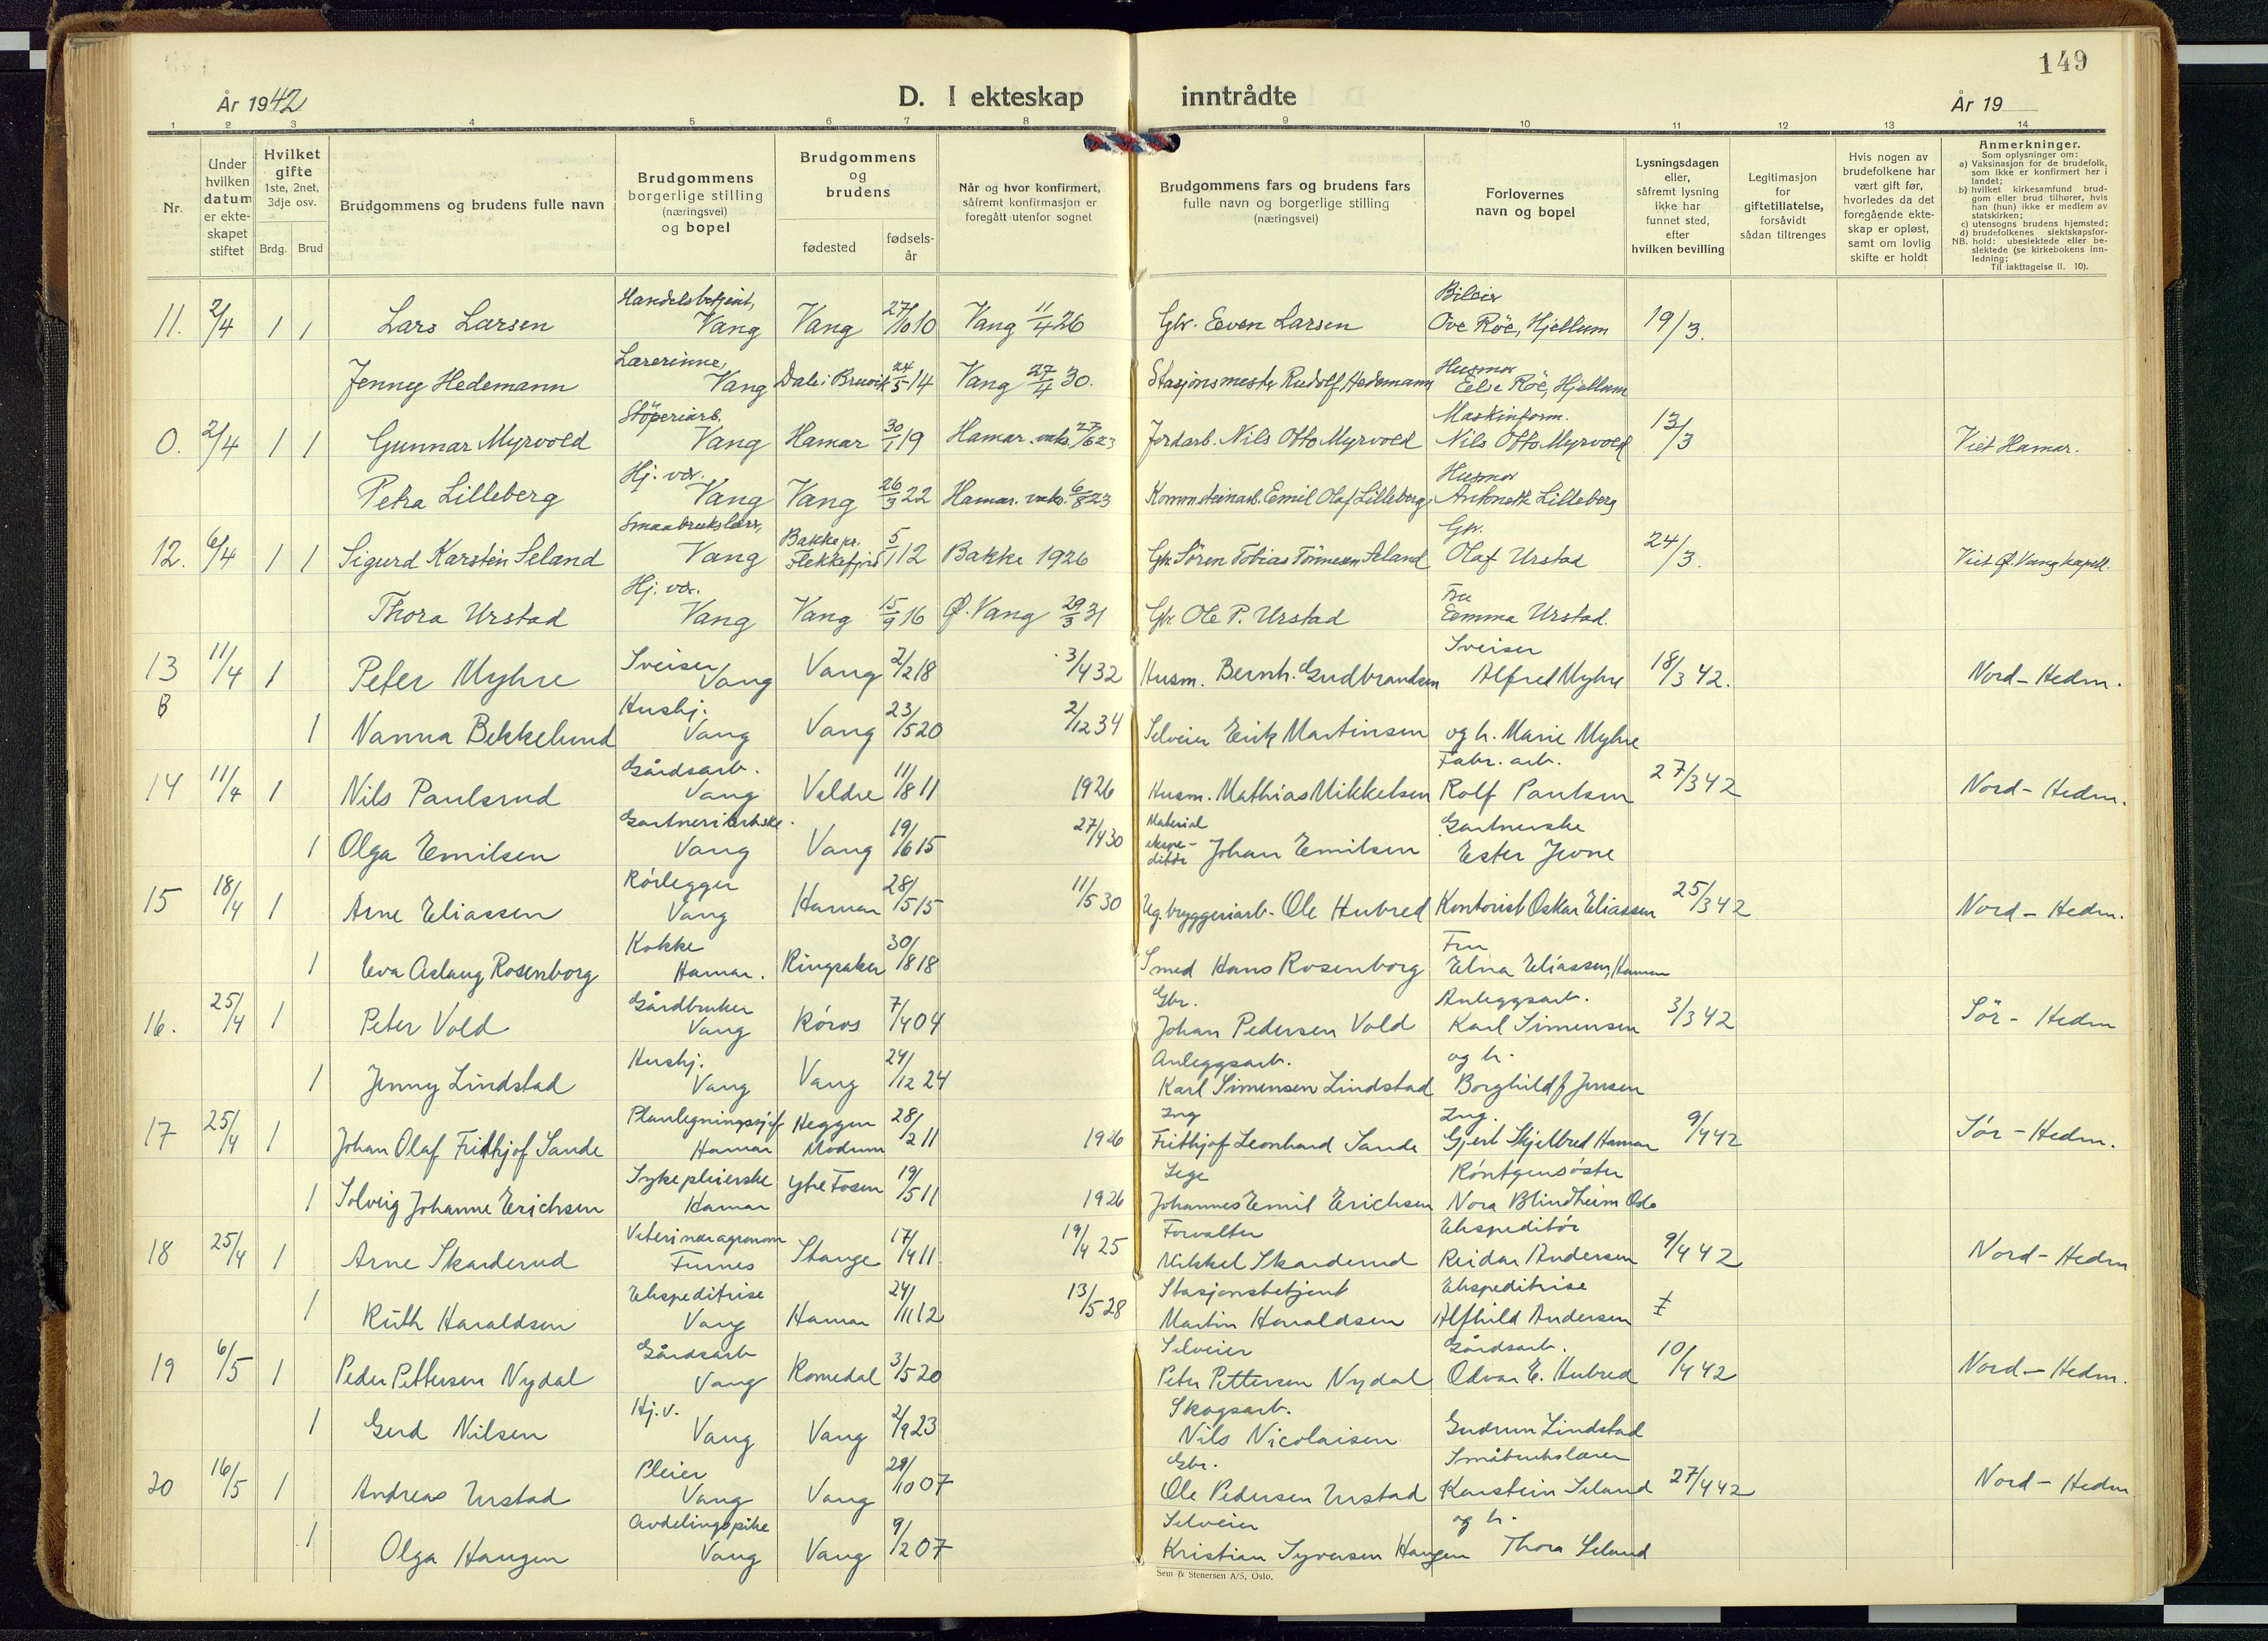 149
År 1942
D. I ekteskap inntrådte
År 19
1 2 3 4 5 6 7 8 9 10 11 12 13 14
Nr.
Under hvilken datum er ekteskapet stiftet
Hvilket gifte
1ste, 2net, 3dje osv.
Brdg. Brud
Brudgommens og brudens fulle navn
Brudgommens borgerlige stilling (næringsvei) og bopel
Brudgommens og brudens
fødested
fødselsår
Når og hvor konfirmert, såfremt konfirmasjon er foregått utenfor sognet
Brudgommens fars og brudens fars fulle navn og borgerlige stilling (næringsvei)
Forlovernes navn og bopel
Lysningsdagen eller, såfremt lysning ikke har funnet sted, efter hvilken bevilling
Legitimasjon for giftetillatelse, forsåvidt sådan tiltrenges
Hvis nogen av brudefolkene har vært gift før, hvorledes da det foregående ekteskap er opløst, samt om lovlig skifte er holdt
Anmerkninger.
Som oplysninger om:
a) Vaksinasjon for de brudefolk, som ikke er konfirmert her i landet;
b) hvilket kirkesamfund brudgom eller brud tilhører, hvis han (hun) ikke er medlem av statskirken;
c) utensogns brudens hjemsted;
d) brudefolkenes slektskapsforhold: ubeslektede eller beslektede (se kirkebokens innledning;
NB. Til iakttagelse II. 10).
Handelsbetjent, Bileier
11. 2/4 1 1 Lars Larsen Vang Vang 27/10 10 Vang 11/4 26 Gbr. Even Larsen Ove Röe, Hjellum 19/3.
Lærerinne, Husmor
Jenny Hedemann Vang Dale i Bruvik 24/5 14 Vang 27/4 30. Stasjonsmester Rudolf Hedemann Else Röe, Hjellum
Støperiarb. Maskinform.
0. 2/4 1 1 Gunnar Myrvold Vang Hamar 30/1 19 Hamar. vaks. 27/6 23 Jordarb. Nils Otto Myrvold Nils Otto Myrvold 13/3 Viet Hamar.
Hj. vær. Husmor
Petra Lilleberg Vang Vang 26/3 22 Hamar. vaks. 6/8 23 Emil Olaf Lilleberg Antonette Lilleberg
Smaabrukslærer, Bakke pr. Gbr.
12. 6/4 1 1 Sigurd Karstein Seland Vang Flekkefjord 5/1 12 Bakke 1926 Gbr. Sören Tobias Tönnesen Seland Olaf Urstad 24/3. Viet Ø. Vang kapell.
Hj. vær. Fru
Thora Urstad Vang Vang 15/9 16 Ø. Vang 29/3 31 Gbr. Ole P. Urstad Emma Urstad.
Sveiser Sveiser
13 11/4 1 Peter Myhre Vang Vang 2/2 18 3/4 32 Husm. Bernh. Gudbrandsen Alfred Myhre 18/3 42. Nord-Hedm.
Hushj.
1 Nanna Bekkelund Vang Vang 23/5 20 2/12 34 Selveier Erik Martinsen og h. Marie Myhre
Gårdsarb. Fabr. arb.
14 11/4 1 Nils Paulsrud Vang Veldre 11/8 11 1926 Husm. Mathias Mikkelsen Rolf Paulsen 27/3 42 Nord-Hedm.
Gartneriarbske. Material Gartnerske
1 Olga Emilsen Vang Vang 19/6 15 27/4 30 ekspeditør Johan Emilsen Ester Jevne
Rörlegger
15 18/4 1 Arne Eliassen Vang Hamar 28/5 15 11/5 30 Ug. bryggeriarb. Ole Hubred Kontorist Oskar Eliassen 25/3 42 Nord-Hedm.
Kokke Fru
1 Eva Aslaug Rosenborg Hamar. Ringsaker 30/8 18 Smed Hans Rosenborg Elna Eliassen, Hamar
Gårdbruker Gbr. Anleggsarb.
16. 25/4 1 Peter Vold Vang Röros 7/4 04 Johan Pedersen Vold Karl Simensen 3/3 42 Sör-Hedm
Hushj. Anleggsarb. og h.
1 Jenny Lindstad Vang Vang 24/12 24 Karl Simensen Lindstad Borghild J. Jensen
Planlegningssjef Heggen Ing Ing.
17 25/4 1 Johan Olaf Frithjof Sande Hamar Modum 28/2 11 1926 Frithjof Leonhard Sande Gjert Skjelbred Hamar 9/4 42 Sör-Hedm.
Sykepleierske Lege Röntgensöster
1 Solveig Johanne Erichsen Hamar Ytre Fosen 19/5 11 1926 Johannes Emil Erichsen Nora Blindheim Oslo
Veterinæragronom Forvalter Ekspeditör
18 25/4 1 Arne Skarderud Furnes Stange 17/4 11 19/4 25 Mikkel Skarderud Reidar Andersen 9/4 42 Nord-Hedm
Ekspeditrise Stasjonsbetjent Ekspeditrise
1 Ruth Haraldsen Vang Hamar 24/11 12 13/5 28 Martin Haraldsen Alfhild Andersen
Gårdsarb Selveier Gårdsarb.
19 6/5 1 Peder Pettersen Nydal Vang Romedal 3/5 20 Peter Pettersen Nydal Odvar E. Hubred 10/4 42 Nord-Hedm.
Hj. v. Skogsarb.
1 Gerd Nilsen Vang Vang 2/9 23 Nils Nicolaisen Gudrun Lindstad
Pleier Gbr. Småbrukslærer
20 16/5 1 Andreas Urstad Vang Vang 29/10 07 Ole Pedersen Urstad Karstein Seland 27/4 42 Nord-Hedm
Avdelingspike Selveier og h.
1 Olga Haugen Vang Vang 9/2 07 Kristian Syversen Haugen Thora Seland
Sem & Stenersen A/S, Oslo.